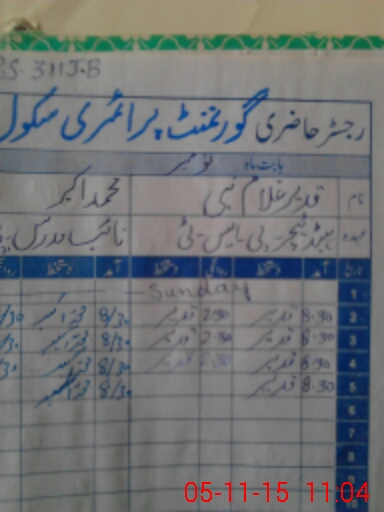 311 J.B
رجسٹر حاضری گورنمنٹ پرائمری سکول
بابت ماہ نومبر
نام محمد اکبر
عہدہ ہیڈ ٹیچر - پی ایس - ٹی نائب مدرس
آمد دستخط روانگی دستخط آمد دستخط
1 Sunday
2 8.30 قدیر 2.30 قدیر 8/30
3 8.30 قدیر 2.30 قدیر 8/30
4 8.30 قدیر 8/30
5 8.30 قدیر 8/30
6
7
8
9
10
05-11-15 11:04